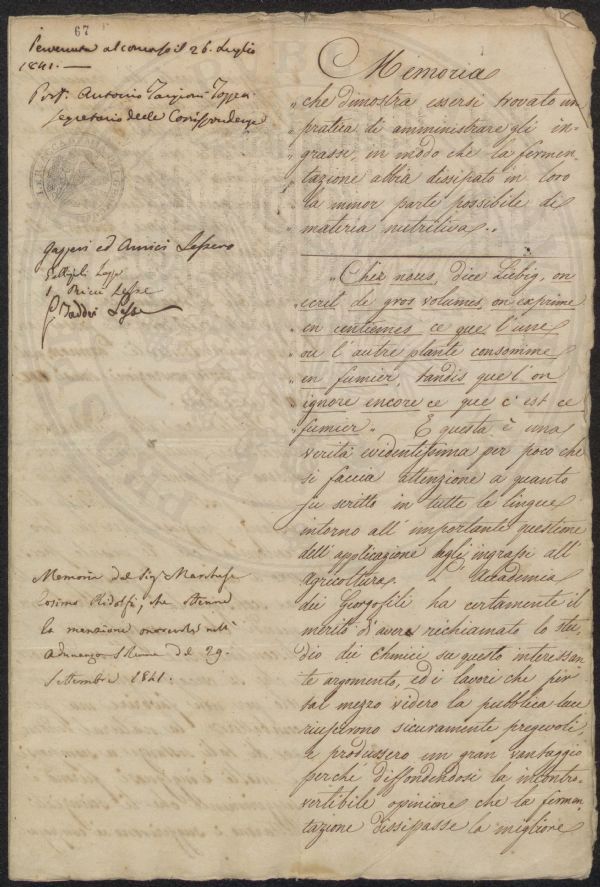 67
Pervenuta al concorso il 26. Luglio
1841. —
Prof. Antonio Targioni Tozzetti
Segretario delle Corrispondenze
Gazzeri ed Amici Lessero
Lesse
Ricci Lesse
Taddei Lesse
Memoria del Sig. Marchese
Cosimo Ridolfi, che ottenne
la menzione onorevole nell'
adunanza Solenne del 29.
Settembre 1841.
Memoria
„ che dimostra essersi trovato un
„ pratica di amministrare gli in-
„ grassi, in modo che la fermen-
„ tazione abbia dissipato in loro
„ la minor parte possibile di
„ materia nutritiva. „
„ Chez nous, dice Liebig, on
„ ecrit de gros volumes, on exprime
„ en centiemes, ce que l'une
„ ou l'autre plante consomme
„ en fumier, tandis que l'on
„ ignore encore ce que c'est ce
„ fumier. E questa è una
verità evidentissima per poco che
si faccia attenzione a quanto
fu scritto in tutte le lingue
intorno all'importante questione
dell'applicazione degli ingrassi all'
Agricoltura. L'Accademia
dei Georgofili ha certamente il
merito d'avere richiamato lo stu-
dio dei Chimici su questo interessan-
te argomento, ed i lavori che per
tal mezzo videro la pubblica luce
riuscirono sicuramente pregevoli,
e produssero un gran vantaggio
perché diffondendosi la incontro-
vertibile opinione che la fermen-
tazione dissipasse la migliore